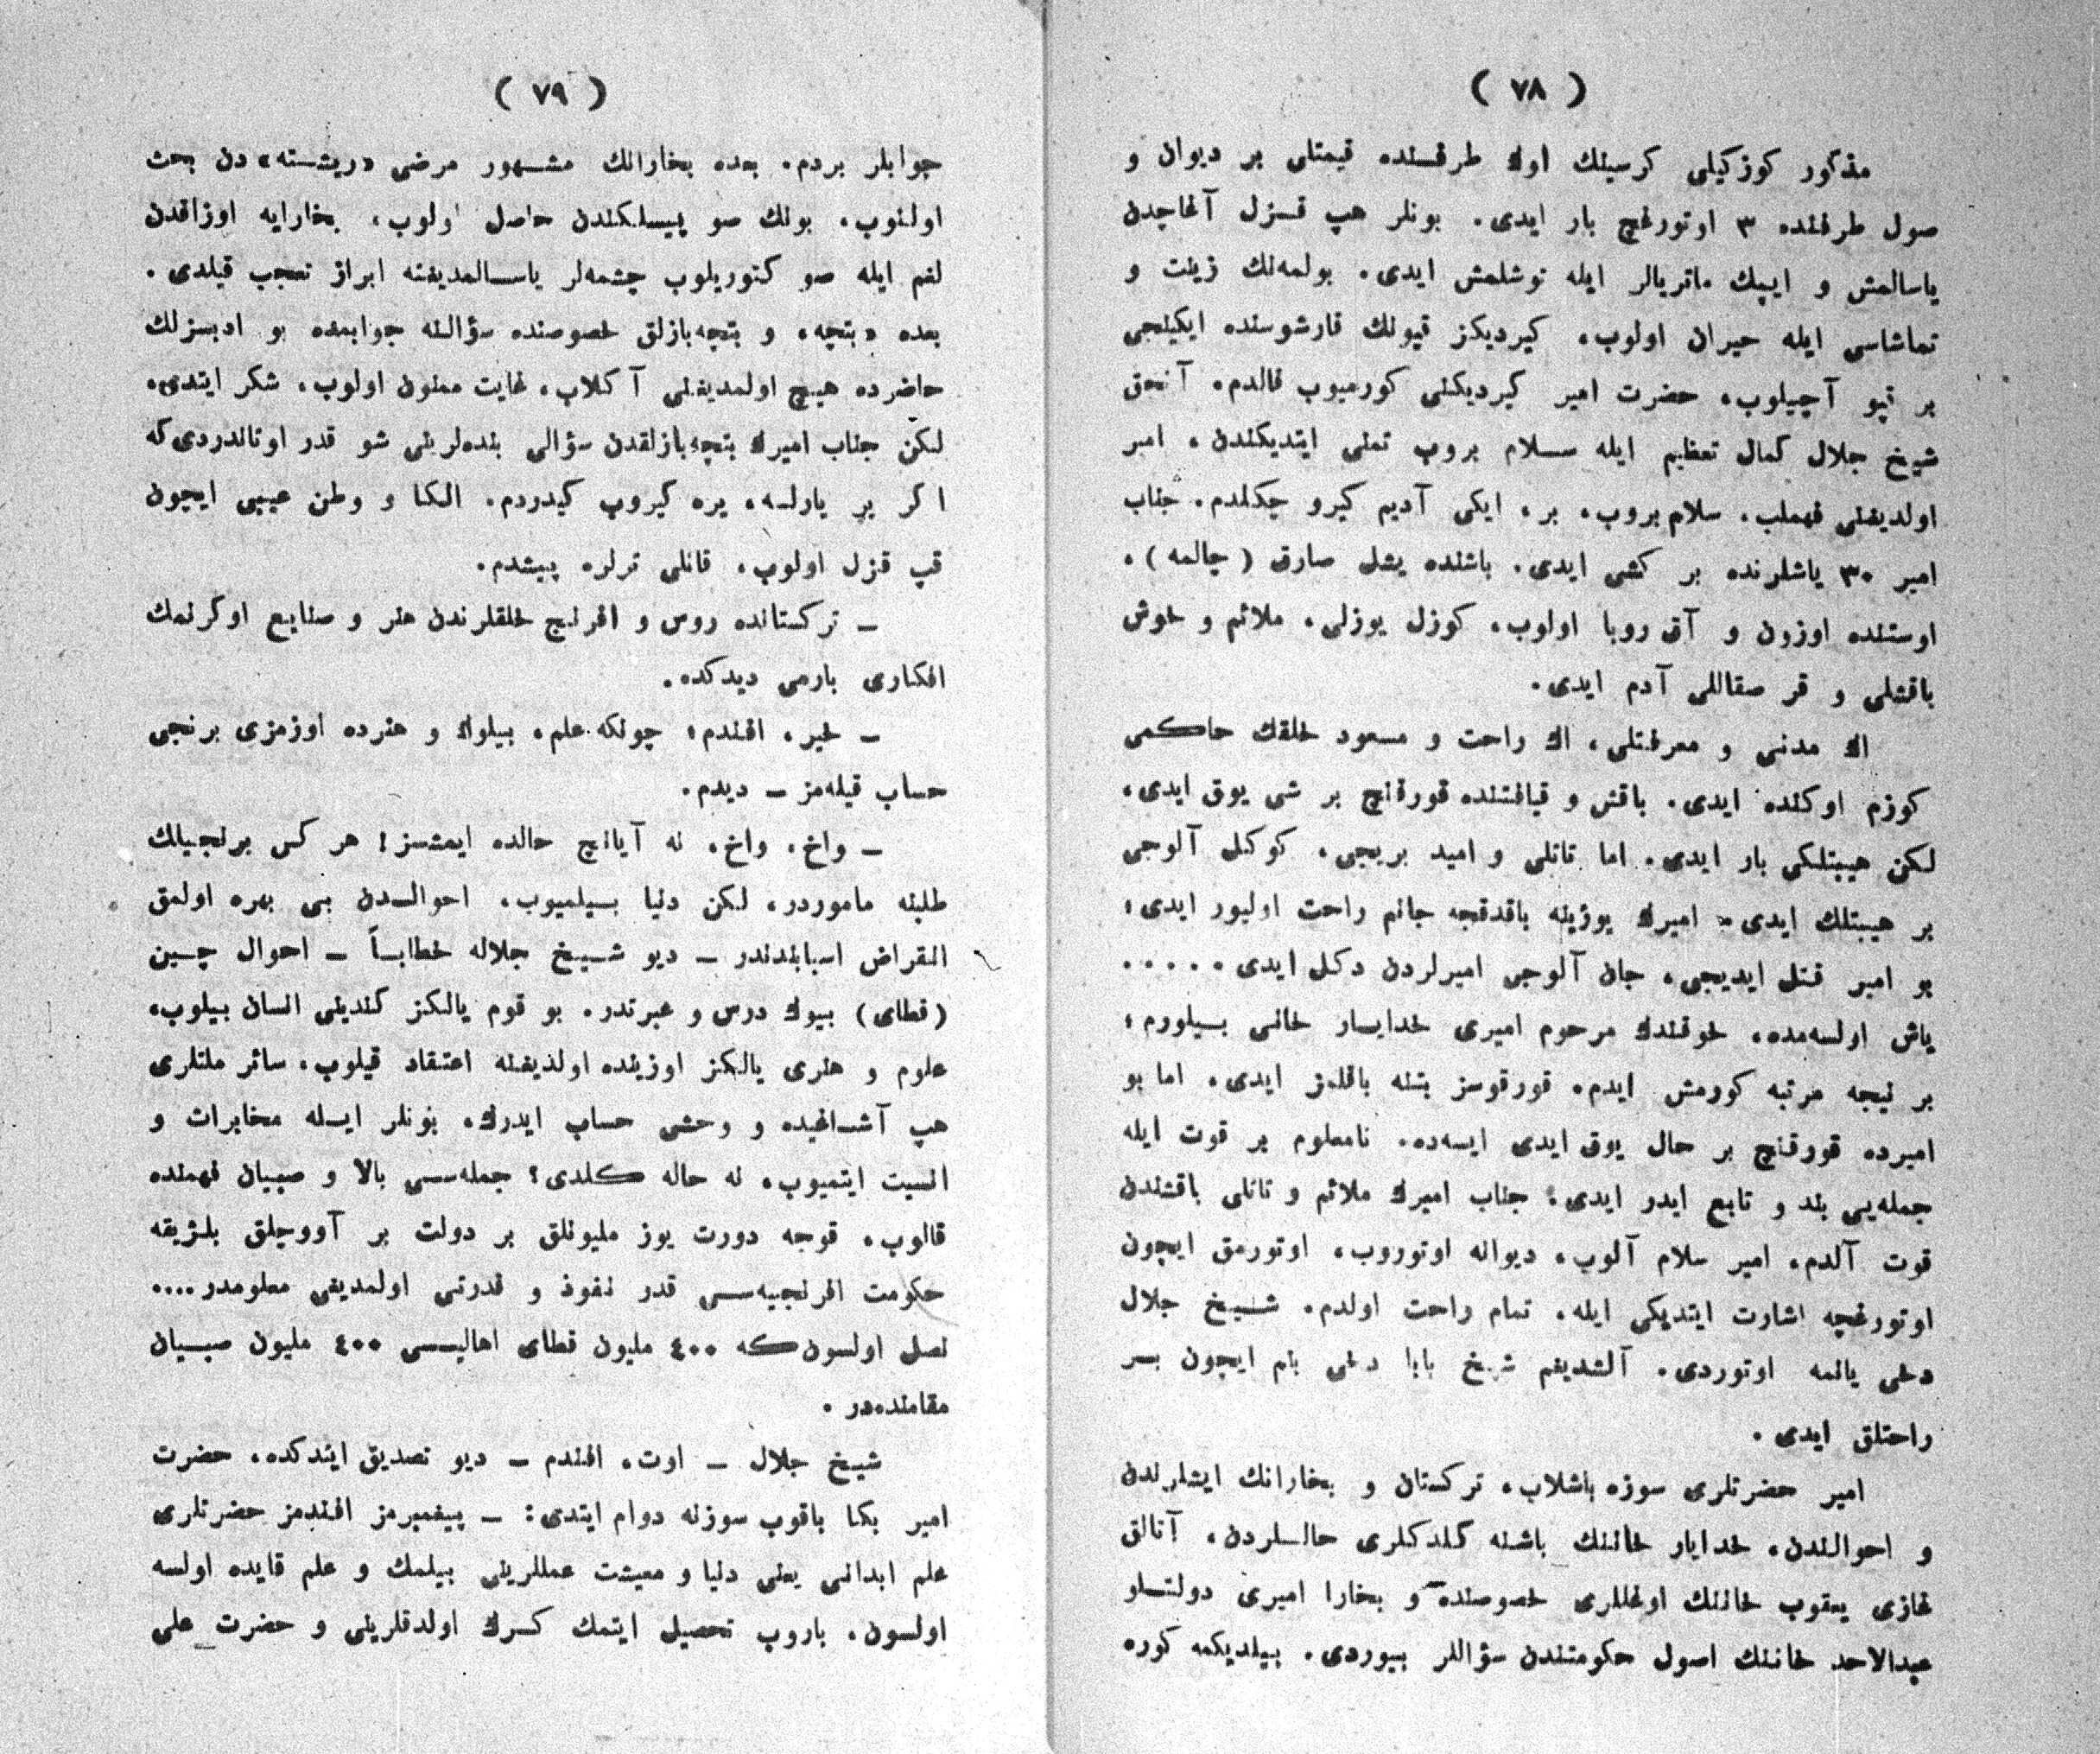 ( ٧٨ )
مذكور كوزكيلى كرسينك اوڭ طرفنده قيمتلى بر ديوان و
صول طرفنده ٣ اوتورغچ بار ايدى. بونلر هپ قزل آغاچدن
ياسالمش و ايپك ماتريالر ايله توشلمش ايدى. بولمه‌نك زينت و
تماشاسى ايله حيران اولوب، كيرديكز قپونك قارشوسنده ايكينجى
بر قپو آچيلوب، حضرت امير كيرديكنى كورميوب قالدم. آنجق
شيخ جلال كمال تعظيم ايله سلام بروب تمنى ايتديكندن، امير
اولديغنى فهملب. سلام بروب، بر، ايكى آديم كيرو چكلدم. جناب
امير ٣٠ ياشلرنده بر كشى ايدى. باشنده يشل صارق (چالمه)،
اوستنده اوزون و آق روبا اولوب، كوزل يوزلى، ملائم و خوش
باقشلى و قر صقاللى آدم ايدى.
اڭ مدنى و معرفتلى، اڭ راحت و مسعود خلقك حاكمى
كوزم اوكنده ايدى. باقش و قيافتنده قورقنچ بر شى يوق ايدى،
لكن هيبتلكى بار ايدى. اما تاتلى و اميد بريجى، كوكل آلوجى
بر هيبتلك ايدى. اميرڭ يوزينه باقدقجه جانم راحت اوليور ايدى؛
بو امير قتل ايديجى، جان آلوجى اميرلردن دكل ايدى . . . . .
ياش اولسه‌مده، خوقندڭ مرحوم اميرى خدايار خانى بيلورم؛
بر نيجه مرتبه كورمش ايدم. قورقوسز بتنه باقلمز ايدى. اما بو
اميرده قورقنچ بر حال يوق ايدى ايسه‌ده. نامعلوم بر قوت ايله
جمله‌يى بند و تابع ايدر ايدى؛ جناب اميرڭ ملائم و تاتلى باقشندن
قوت آلدم. امير سلام آلوب، ديوانه اوتوروب، اوتورمق ايچون
اوتورغچه اشارت ايتديكى ايله، تمام راحت اولدم. شيخ جلال
دخى يانمه اوتوردى. آلشديغم شيخ بابا دخى بنم ايچون بر
راحتلق ايدى.
امير حضرتلرى سوزه باشلاب، تركستان و بخارانك ايشلرندن
و احوالندن، خدايار خاننك باشنه كلدكلرى حاللردن، آتالق
غازى يعقوب خاننك اوغللرى خصوصنده و بخارا اميرى دولتلو
عبدالاحد خاننك اصول حكومتندن سؤاللر بيوردى. بيلديكمه كوره
( ٧٩ )
جوابلر بردم. بعده بخارانك مشهور مرضى «ريشته» دن بحث
اولنوب، بونك صو پيسلكندن حاصل اولوب، بخارايه اوزاقدن
لغم ايله صو كتوريلوب چشمه‌لر ياسالمديغنه ابراز تعجب قيلدى.
بعده «بتچه» و بتچه‌بازلق خصوصنده سؤالنه جوابمده بو ادبسزلك
حاضرده هيچ اولمديغنى آكلاب، غايت ممنون اولوب، شكر ايتدى.
لكن جناب اميرڭ بتچه‌بازلقدن سؤالى بنده‌لرينى شو قدر اوتاندردى كه
اكر ير يارلسه، يره كيروب كيدردم. الكا و وطن عيبى ايچون
قپ قزل اولوب، قانلى ترلره پيشدم.
ــ تركستانده روس و افرنج خلقلرندن هنر و صنايع اوكرنمك
افكارى بارمى ديدكده.
ــ خير، افندم؛ چونكه علم، بيلوڭ و هنرده اوزمزى برنجى
حساب قيله‌مز ــ ديدم.
ــ واخ، واخ، نه آيانچ حالده ايمشسز! هر كس برنجيلك
طلبنه ماموردر، لكن دنيا بيلميوب، احوالدن بى بهره اولمق
انقراض اسبابندندر ــ ديو شيخ جلاله خطاباً ــ احوال چين
(قطاى) بيوڭ درس و عبرتدر. بو قوم يالكز كندينى انسان بيلوب،
علوم و هنرى يالكز اوزينده اولديغنه اعتقاد قيلوب، سائر ملتلرى
هپ آشاغيده و وحشى حساب ايدرك، بونلر ايله مخابرات و
انسيت ايتميوب، نه حاله كلدى؟ جمله‌سى بالا و صبيان فهمنده
قالوب، قوجه دورت يوز مليونلق بر دولت بر آووچلق بلژيقه
حكومت افرنجيه‌سى قدر نفوذ و قدرتى اولمديغى معلومدر....
نصل اولسون كه ٤٠٠ مليون قطاى اهاليسى ٤٠٠ مليون صبيان
مقامنده‌در.
شيخ جلال ــ اوت، افندم ــ ديو تصديق ايتدكده، حضرت
امير بكا باقوب سوزنه دوام ايتدى: ــ پيغمبرمز افندمز حضرتلرى
علم ابدانى يعنى دنيا و معيشت عمللرينى بيلمك و علم قايده اولسه
اولسون، باروب تحصيل ايتمك كرك اولدقلرينى و حضرت على